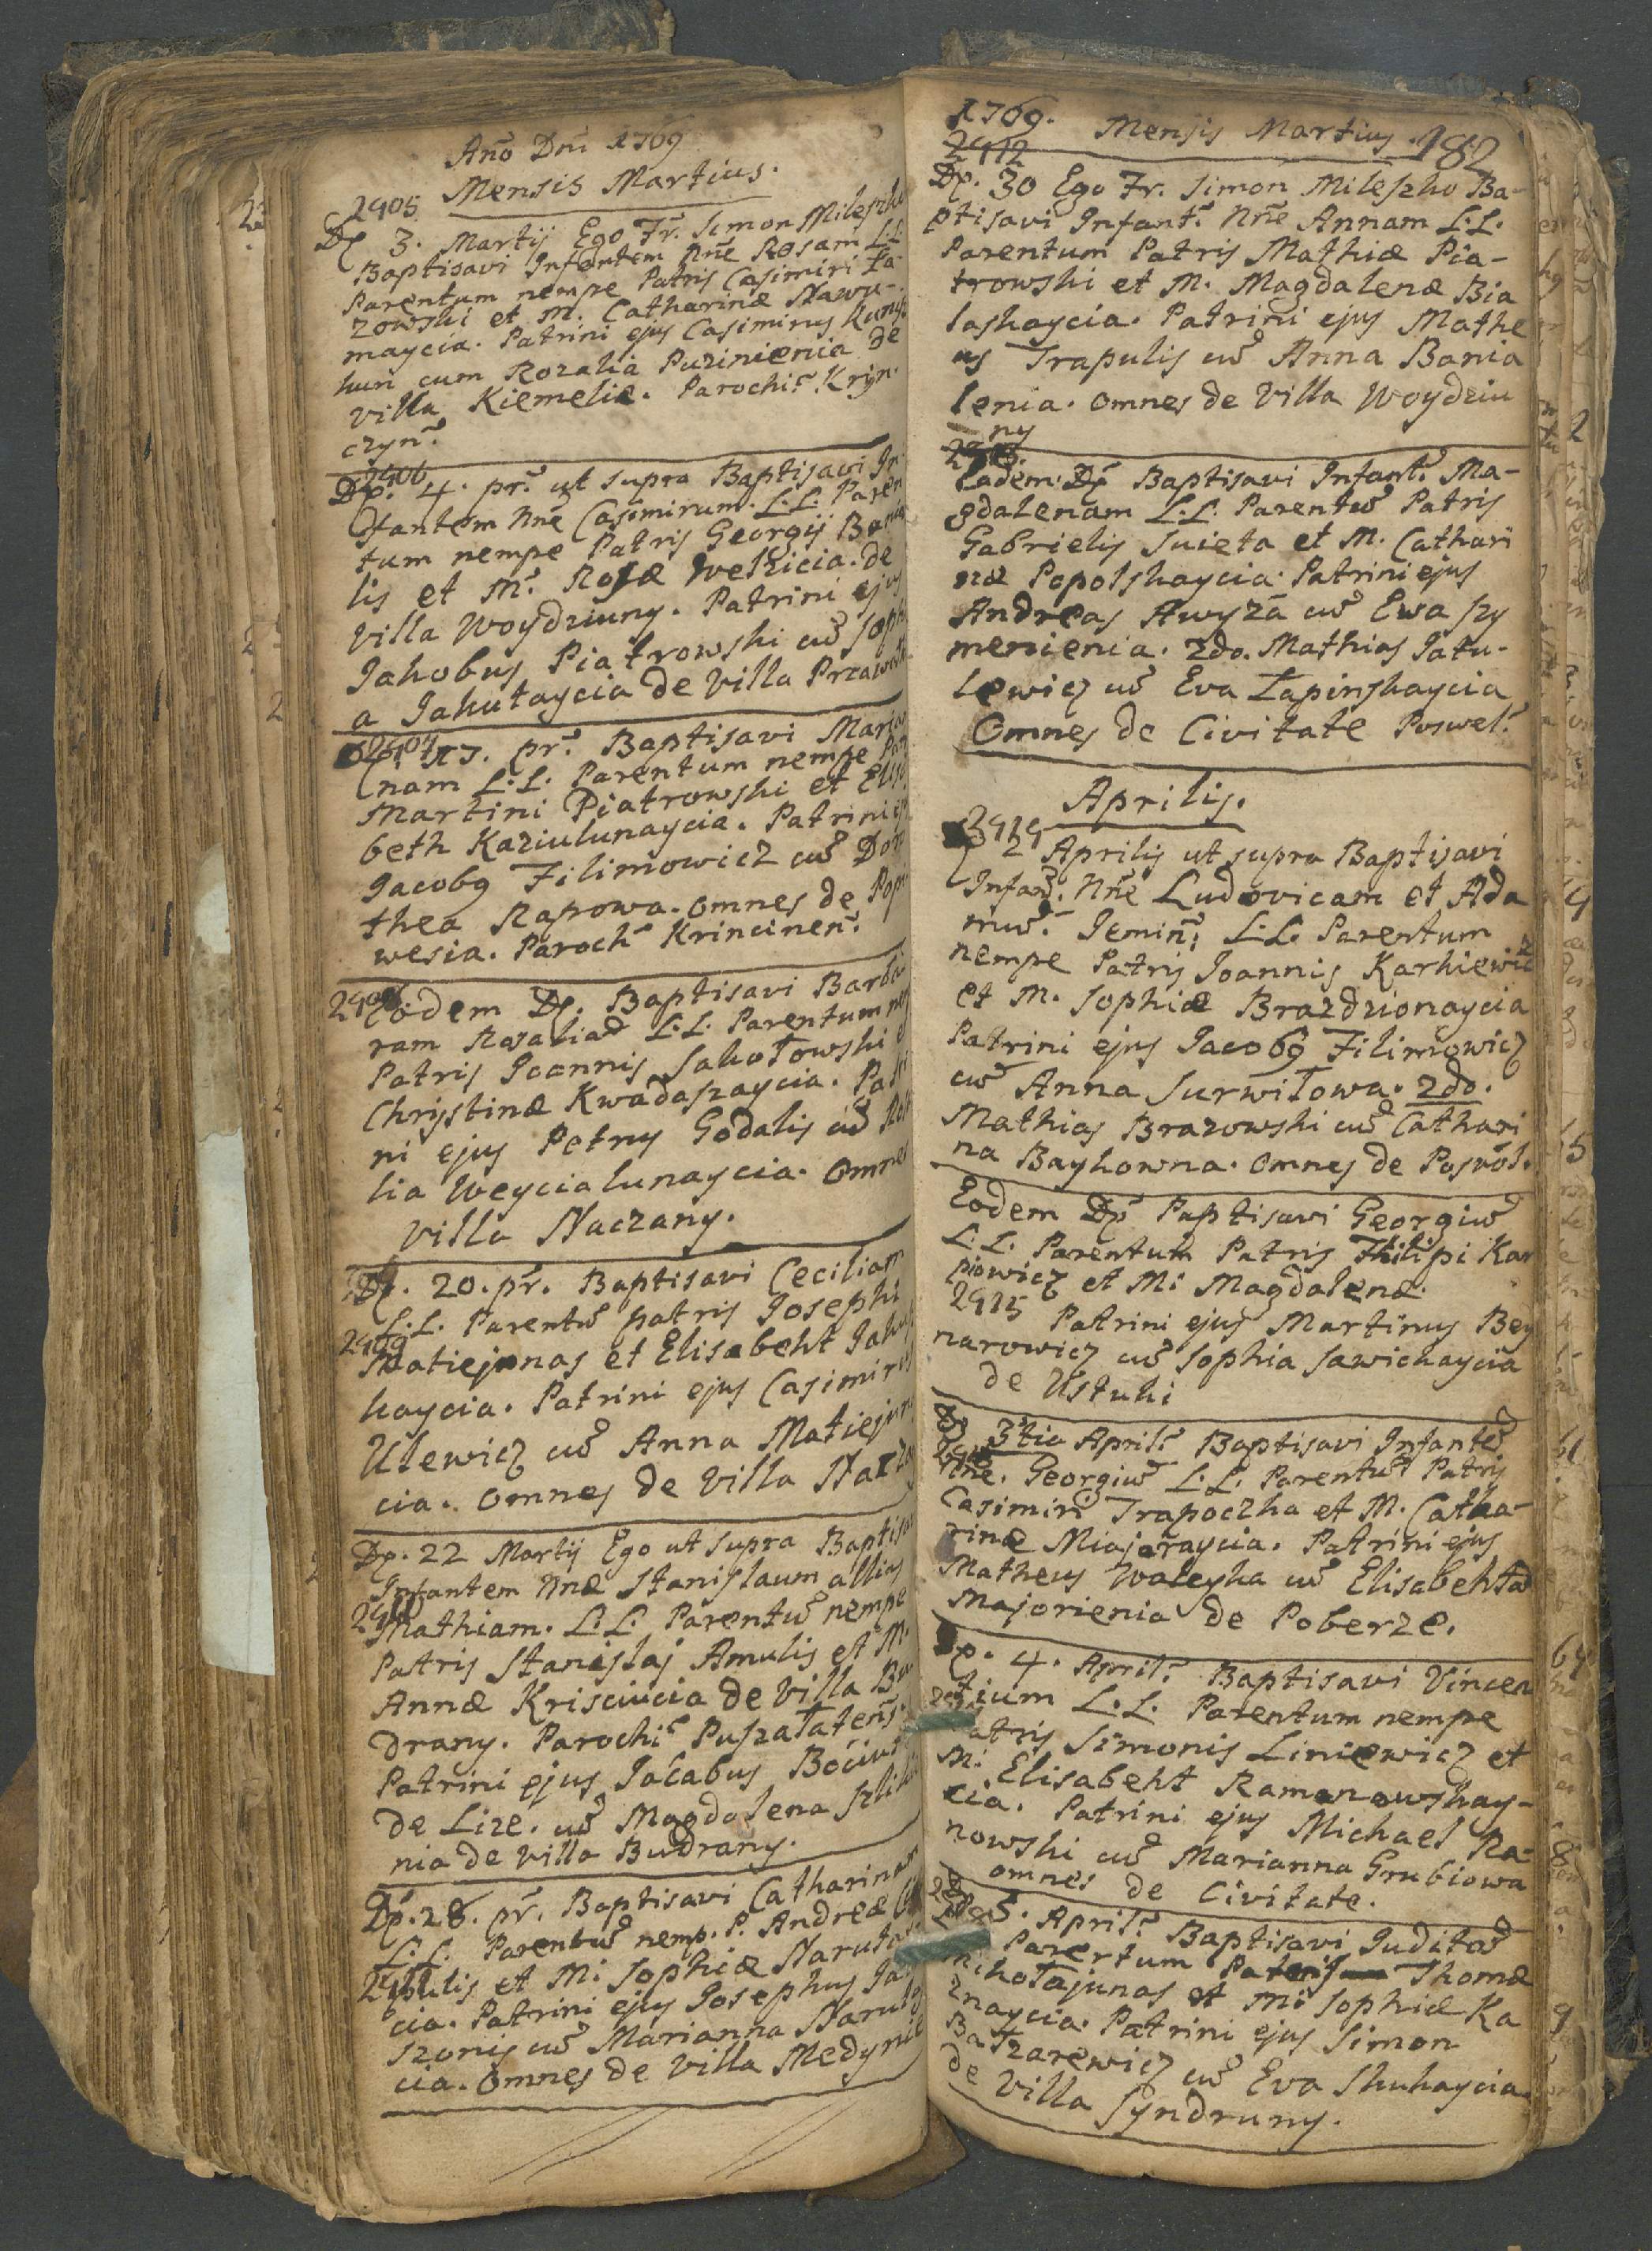 Año Dni 1769
Mensis Martius.
2905
D. 3. Martij Ego Fr. Simon Mileszko
Baptisavi Infantem Nne Rosam L.L.
Parentum nempe Patris Casimiri Ła-
zowski et M. Catharinæ Nawu-
maycia. Patrini ejus Casimirus
kun cum Rozalia Puzinienia de
villa Kiemelie. Parochi. Kryn-
czyn.
2906
Dp. 4. pr. ut supra Baptisavi In-
fantem Nne Casimirum. L.L. Paren
tum nempe Patris Georgij
lis et M. Rosæ Welzicia. de
villa Woydziuny. Patrini ejus
Jakobus Piatrowski cum Soph
a Jakutaycia de villa
2907
17. pr. Baptisavi Maria
nam L.L. Parentum nempe Pat
Martini Piatrowski et Elisa
beth Kaziulunaycia. Patrini ej
Jacobg Filimowicz cum Doro
thea Rapowa. omnes de
wesia. Paroch Krincinen.
2908
Eodem Dp. Baptisavi Barba
ram Rosaliam L.L. Parentum nem
Patris Joannis Sakołowski
Chrystinæ Kwadaszaycia. Patri
ni ejus Petrus Godalis cum
lia Weycialunaycia. Omnes
villa Naczany.
Dp. 20. pr. Baptisavi Ceciliam
L.L. Parentum patris Josephi
2909
Matiejunas et Elisabeht
kaycia. Patrini ejus Casimirus
Ulewicz cum Anna Matiejuna
cia. omnes de villa
Dp. 22 Martij Ego ut supra Baptisavi
Infantem Nnæ Stanislaum allias
2910
Mathiam. L.L. Parentum nempe
Patris Stanislaj Amulis et M.
Annæ Krisciucia de villa Bu
drany. Parochi Puszałatens.
Patrini ejus Jacabus
de Lize. cum Magdalena
nia de villa Budrany.
Dp. 28. pr. Baptisavi Catharinam
L.L. Parentum nemp. P. Andreæ
2911
et M. Sophiæ
cia. Patrini ejus Josephus
szonis cum Marianna
cia. omnes de villa
1769. Mensis Martius. 182
2912
Dp. 30 Ego Fr. Simon Mileszko Ba-
ptisavi Infant. Nne Annam L.L.
Parentum Patris Mathiæ Pia-
trowski et M. Magdalenæ Bia
laskaycia. Patrini ejus Mathe
us Trapulis cum Anna Bania
lenia. omnes de villa Woydziu
ny
Eadem Dp Baptisavi Infant. Ma-
gdalenam L.L. Parentum Patris
Gabrielis Suieta et M. Cathari
næ Popolskaycia. Patrini ejus
Andreas Awyza cum Ewa szy
menienia. 2do. Mathias Jatu-
lewicz cum Eva Łapinskaycia
Omnes de Civitate Poswel.
Aprilis.
2914
2 Aprilis ut supra Baptisavi
Infan. Nne Ludovicam et Ada
mum. Jemin. L.L. Parentum
nempe Patris Joannis Karkiewicz
et M. Sophiæ Brazdzionaycia
Patrini ejus Jacobg Filimowicz
cum Anna Surwiłowa. 2do.
Mathias Brazowski cum Cathari
na Baykowna. omnes de Poswol.
Eodem Dp Paptisavi Georgium
L.L. Parentum Patris Philipi Kar
piowicz et M. Magdalenæ.
2915
Patrini ejus Martinus Bey
narowicz cum Sophia Sawickaycia
de Ustuki
Dp 3tia April. Baptisavi Infantem
Nne. Georgium L.L. Parentum Patris
Casimiri Trapoczka et M. Catha-
rinæ Miajoraycia. Patrini ejus
Matheus Waleyka cum Elisabehta
Majorienia de Poberze.
Dp. 4. April. Baptisavi Vincen
tium L.L. Parentum nempe
Patris Simonis Liniewicz et
M. Elisabeht Ramanowskay-
cia. Patrini ejus Michael Ra-
nowski cum Marianna Grubiowa
omnes de Civitate.
5. April. Baptisavi Juditam
Parentum Patris Thomæ
Mikołajunas et M. Sophiæ Ka
znaycia. Patrini ejus Simon
Bałzarewicz cum Eva Skukaycia.
de villa Syndruny.